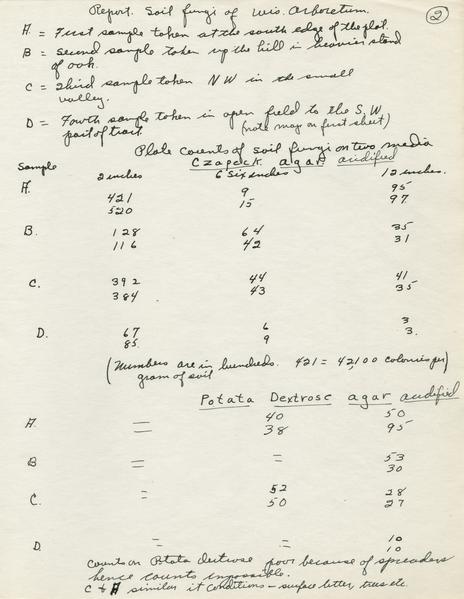 Report. Soil fungi of Wis. Arboretum. (2)
A = First sample taken at the south edge of the plot.
B = Second sample taken up the hill in heavier stand
of oak.
C = Third sample taken NW in the small
valley.
D = Fourth sample taken in open field to the S.W
part of tract (note map on first sheet)
Plate counts of soil fungi on two media
Czapeck agar acidified
Sample 2 inches 6 six inches 12 inches.
A. 421 9 95
520 15 97
B. 128 64 35
116 42 31
C. 392 44 41
384 43 35
D. 67 6 3
85. 9 3.
(Numbers are in hundreds. 421 = 42,100 colonies per)
gram of soil
Potata Dextrose agar acidified
A. = 40 50
38 95
B = = 53
30
C. = 52 28
50 27
D. = = 10
10
Counts on Potata dextrose poor because of spreaders
hence counts impossible.
C & A similar in conditions - surface litter, trees etc.